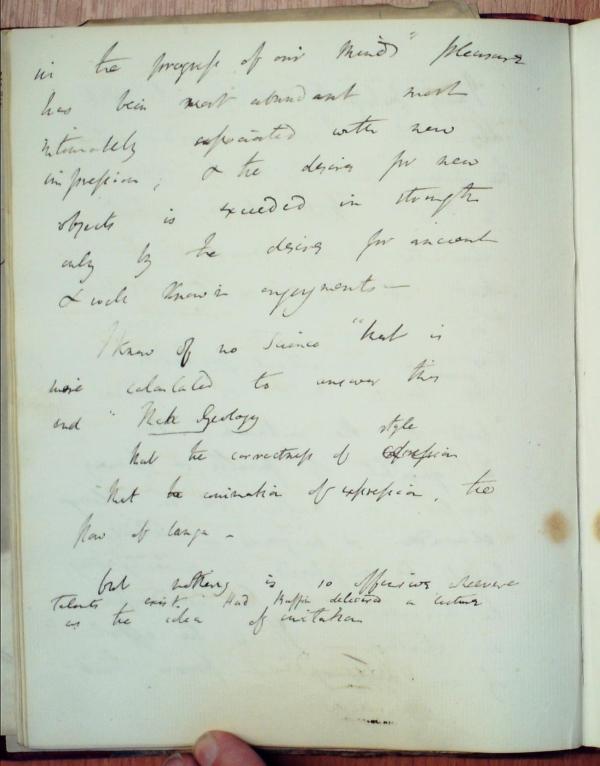 in the progress of our minds" pleasure
has been most abundant most
intimately associated with new
impressions, & the desire for new
objects is exceeded in strength
only by the desire for ancient
& well known enjoyments —
I know of no Science "that is
more calculated to answer this
end " than Geology
that the correctness of style
that the animation of expression, the
flow of langu -
but nothing is so offensive whenever
talents exist. Had delivered a lecture
as the idea of imitation